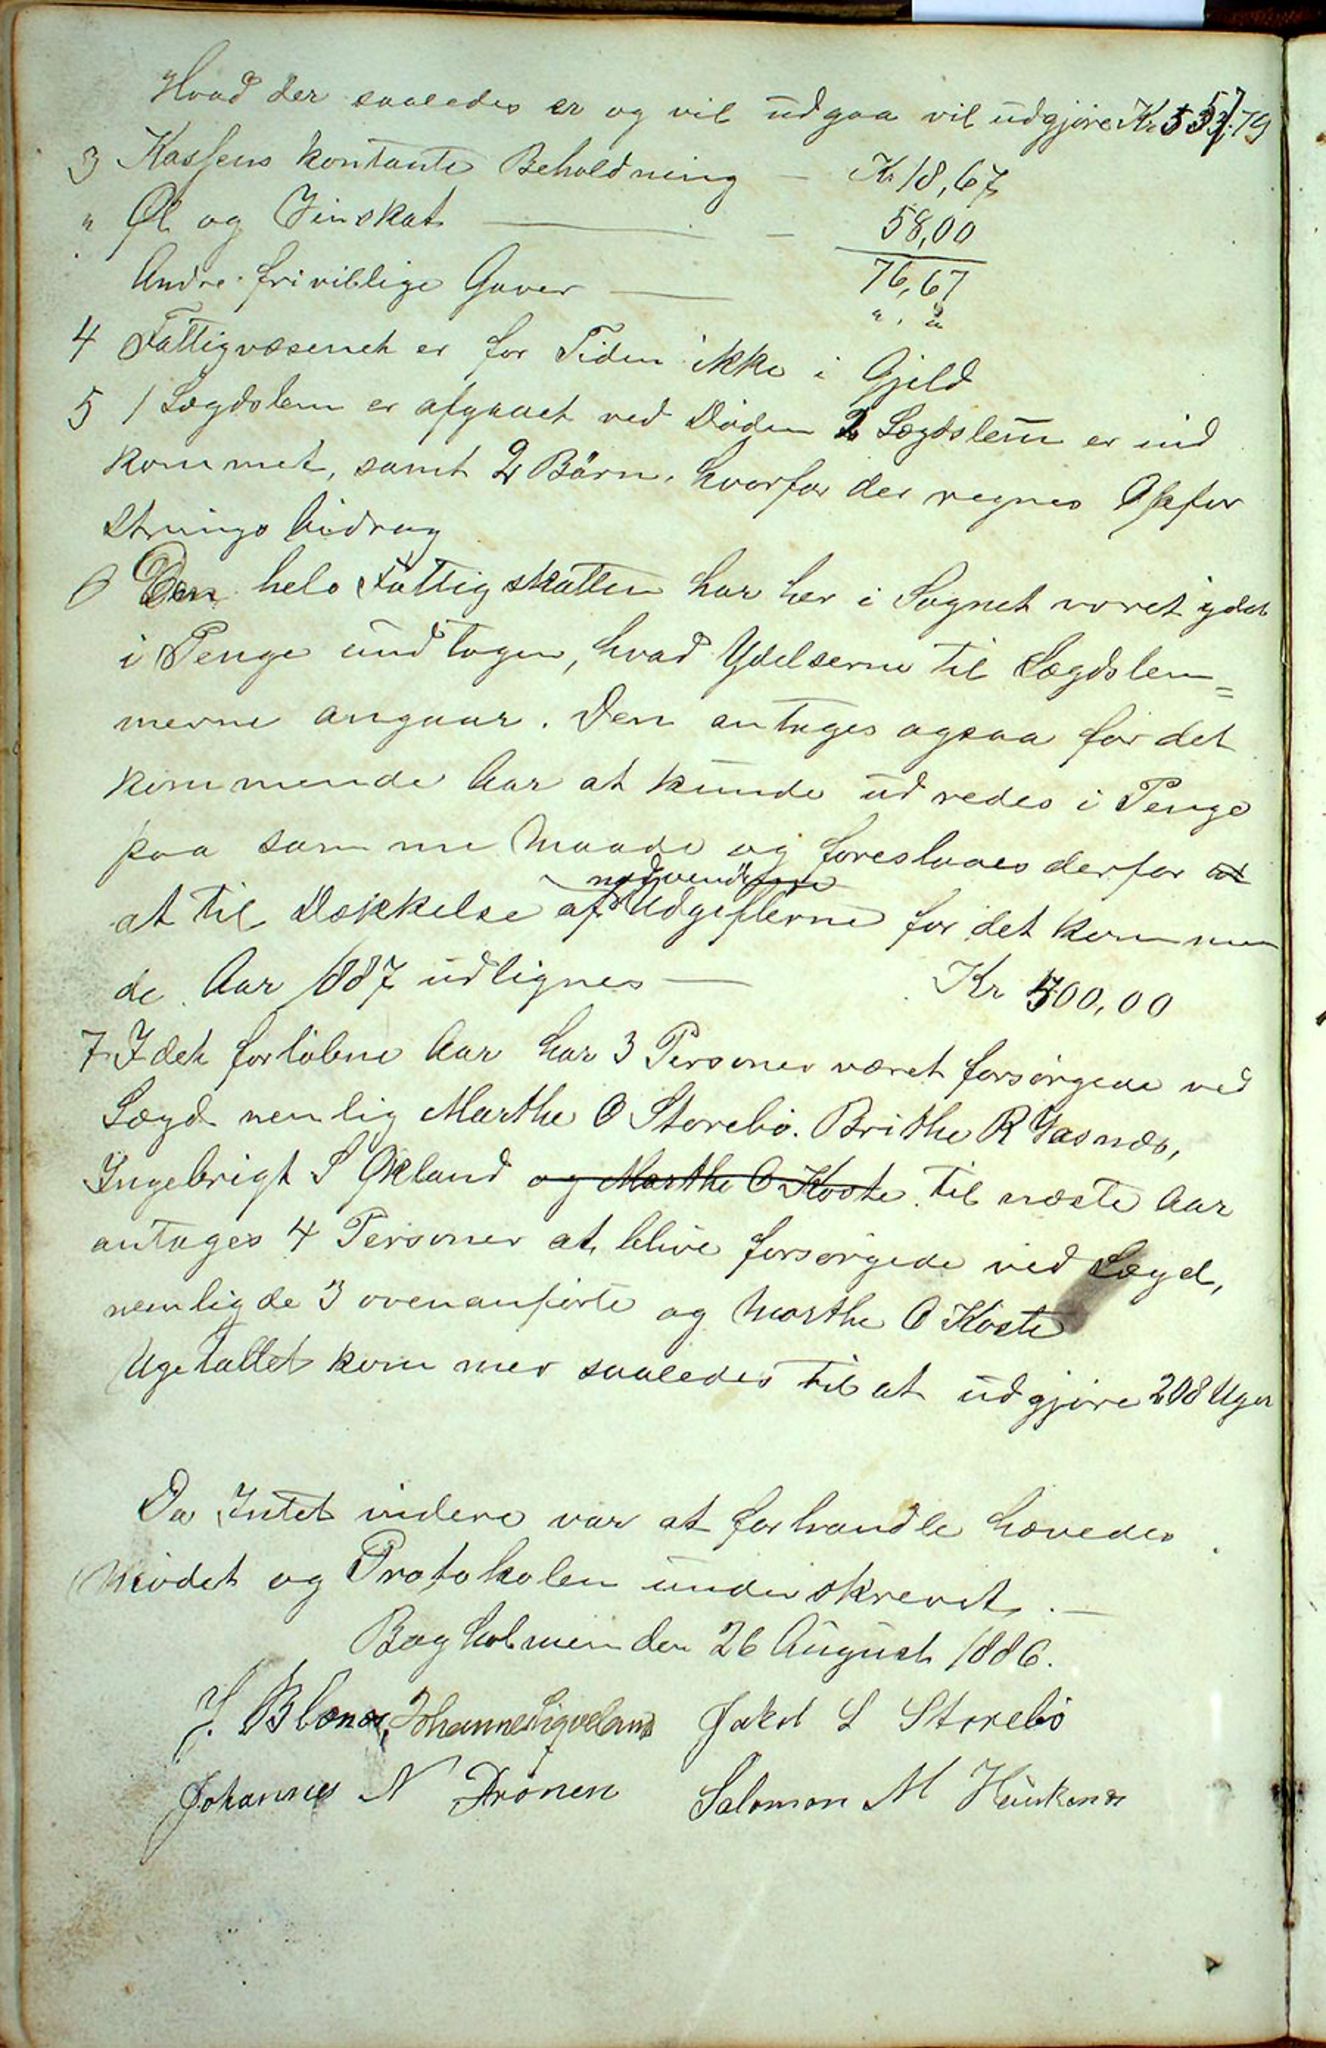 Hvad der saaledes er og vil udgaa vil udgjøre Kr 557,79
3 Kassens kontante Beholdning — Kr 18,67
" Øl og Vinskat — 58,00
76,67
Andre frivillige Gaver — " , "
4 Fattigvæsenet er for Tiden ikke i Gjeld
5 1 Lægdslem er afgaaet ved Døden 2 Lægdslem er ind
kommet, samt 2 Børn, hvorfor der regnes Opfor
strings bidrag
6 Den hele Fattigskatten har her i Sognet været ydet
i Penge undtagen, hvad Ydelserne til Lægdslem=
merne angaar. Den antages ogsaa for det
kommende Aar at kunde udredes i Penge
paa samme Maade og foreslaaes derfor at
nødvendige
at til Dækkelse af Udgifterne for det kommen
de Aar 1887 udlignes — Kr 500,00
7 I det forløbne Aar har 3 Personer været forsørgede ved
Lægd nemlig Marthe O Storebø. Brithe R Vasnæs,
Ingebrigt S Økland og Marthe O Koste. til næste Aar
antages 4 Personer at blive forsørgede ved Lægd,
nemlig de 3 ovenanførte og Marthe O Koste
Ugetallet kommer saaledes til at udgjøre 208 Uger
Da Intet videre var at forhandle hævedes
Mødet og Protokolen underskrevet. —
Bagholmen den 26 August 1886.
J. Blænes, Johannes Ligveland Jakob L Storebø
Johannes N Drønen Salomon M Heukenæs